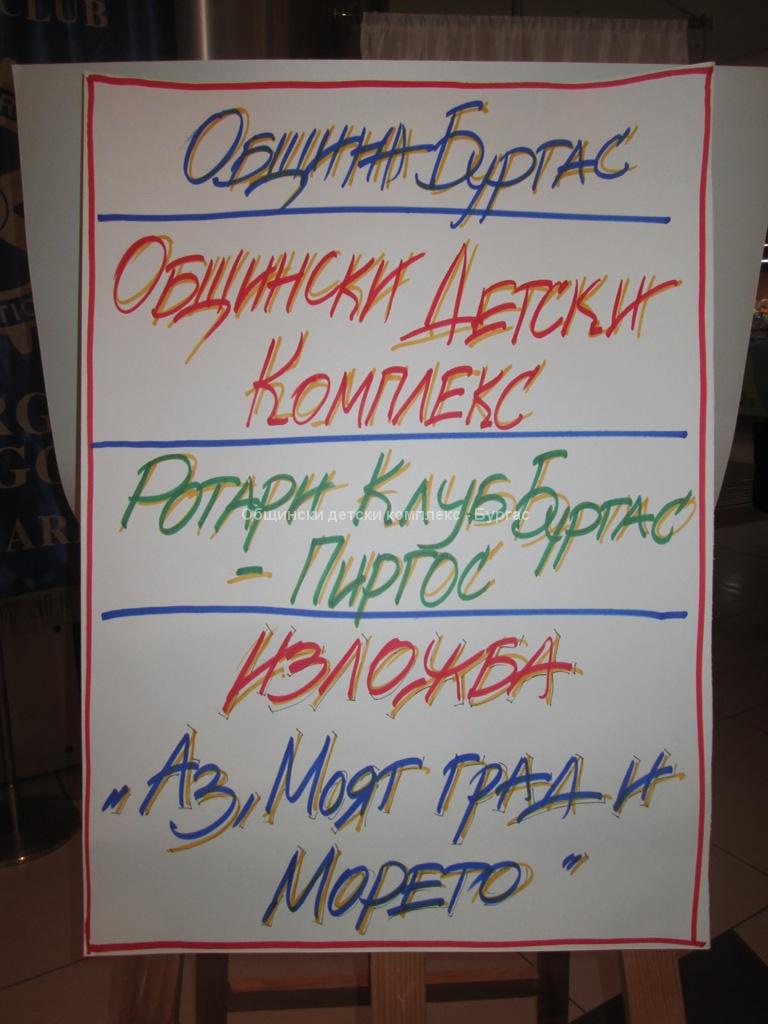 CLUB
Община Бургас
Общински Детски
Комплекс
Ротари Клуб Бургас
Общински детски комплекс - Бургас
- Пиргос
Изложба
„Аз, Моят град и
Морето"